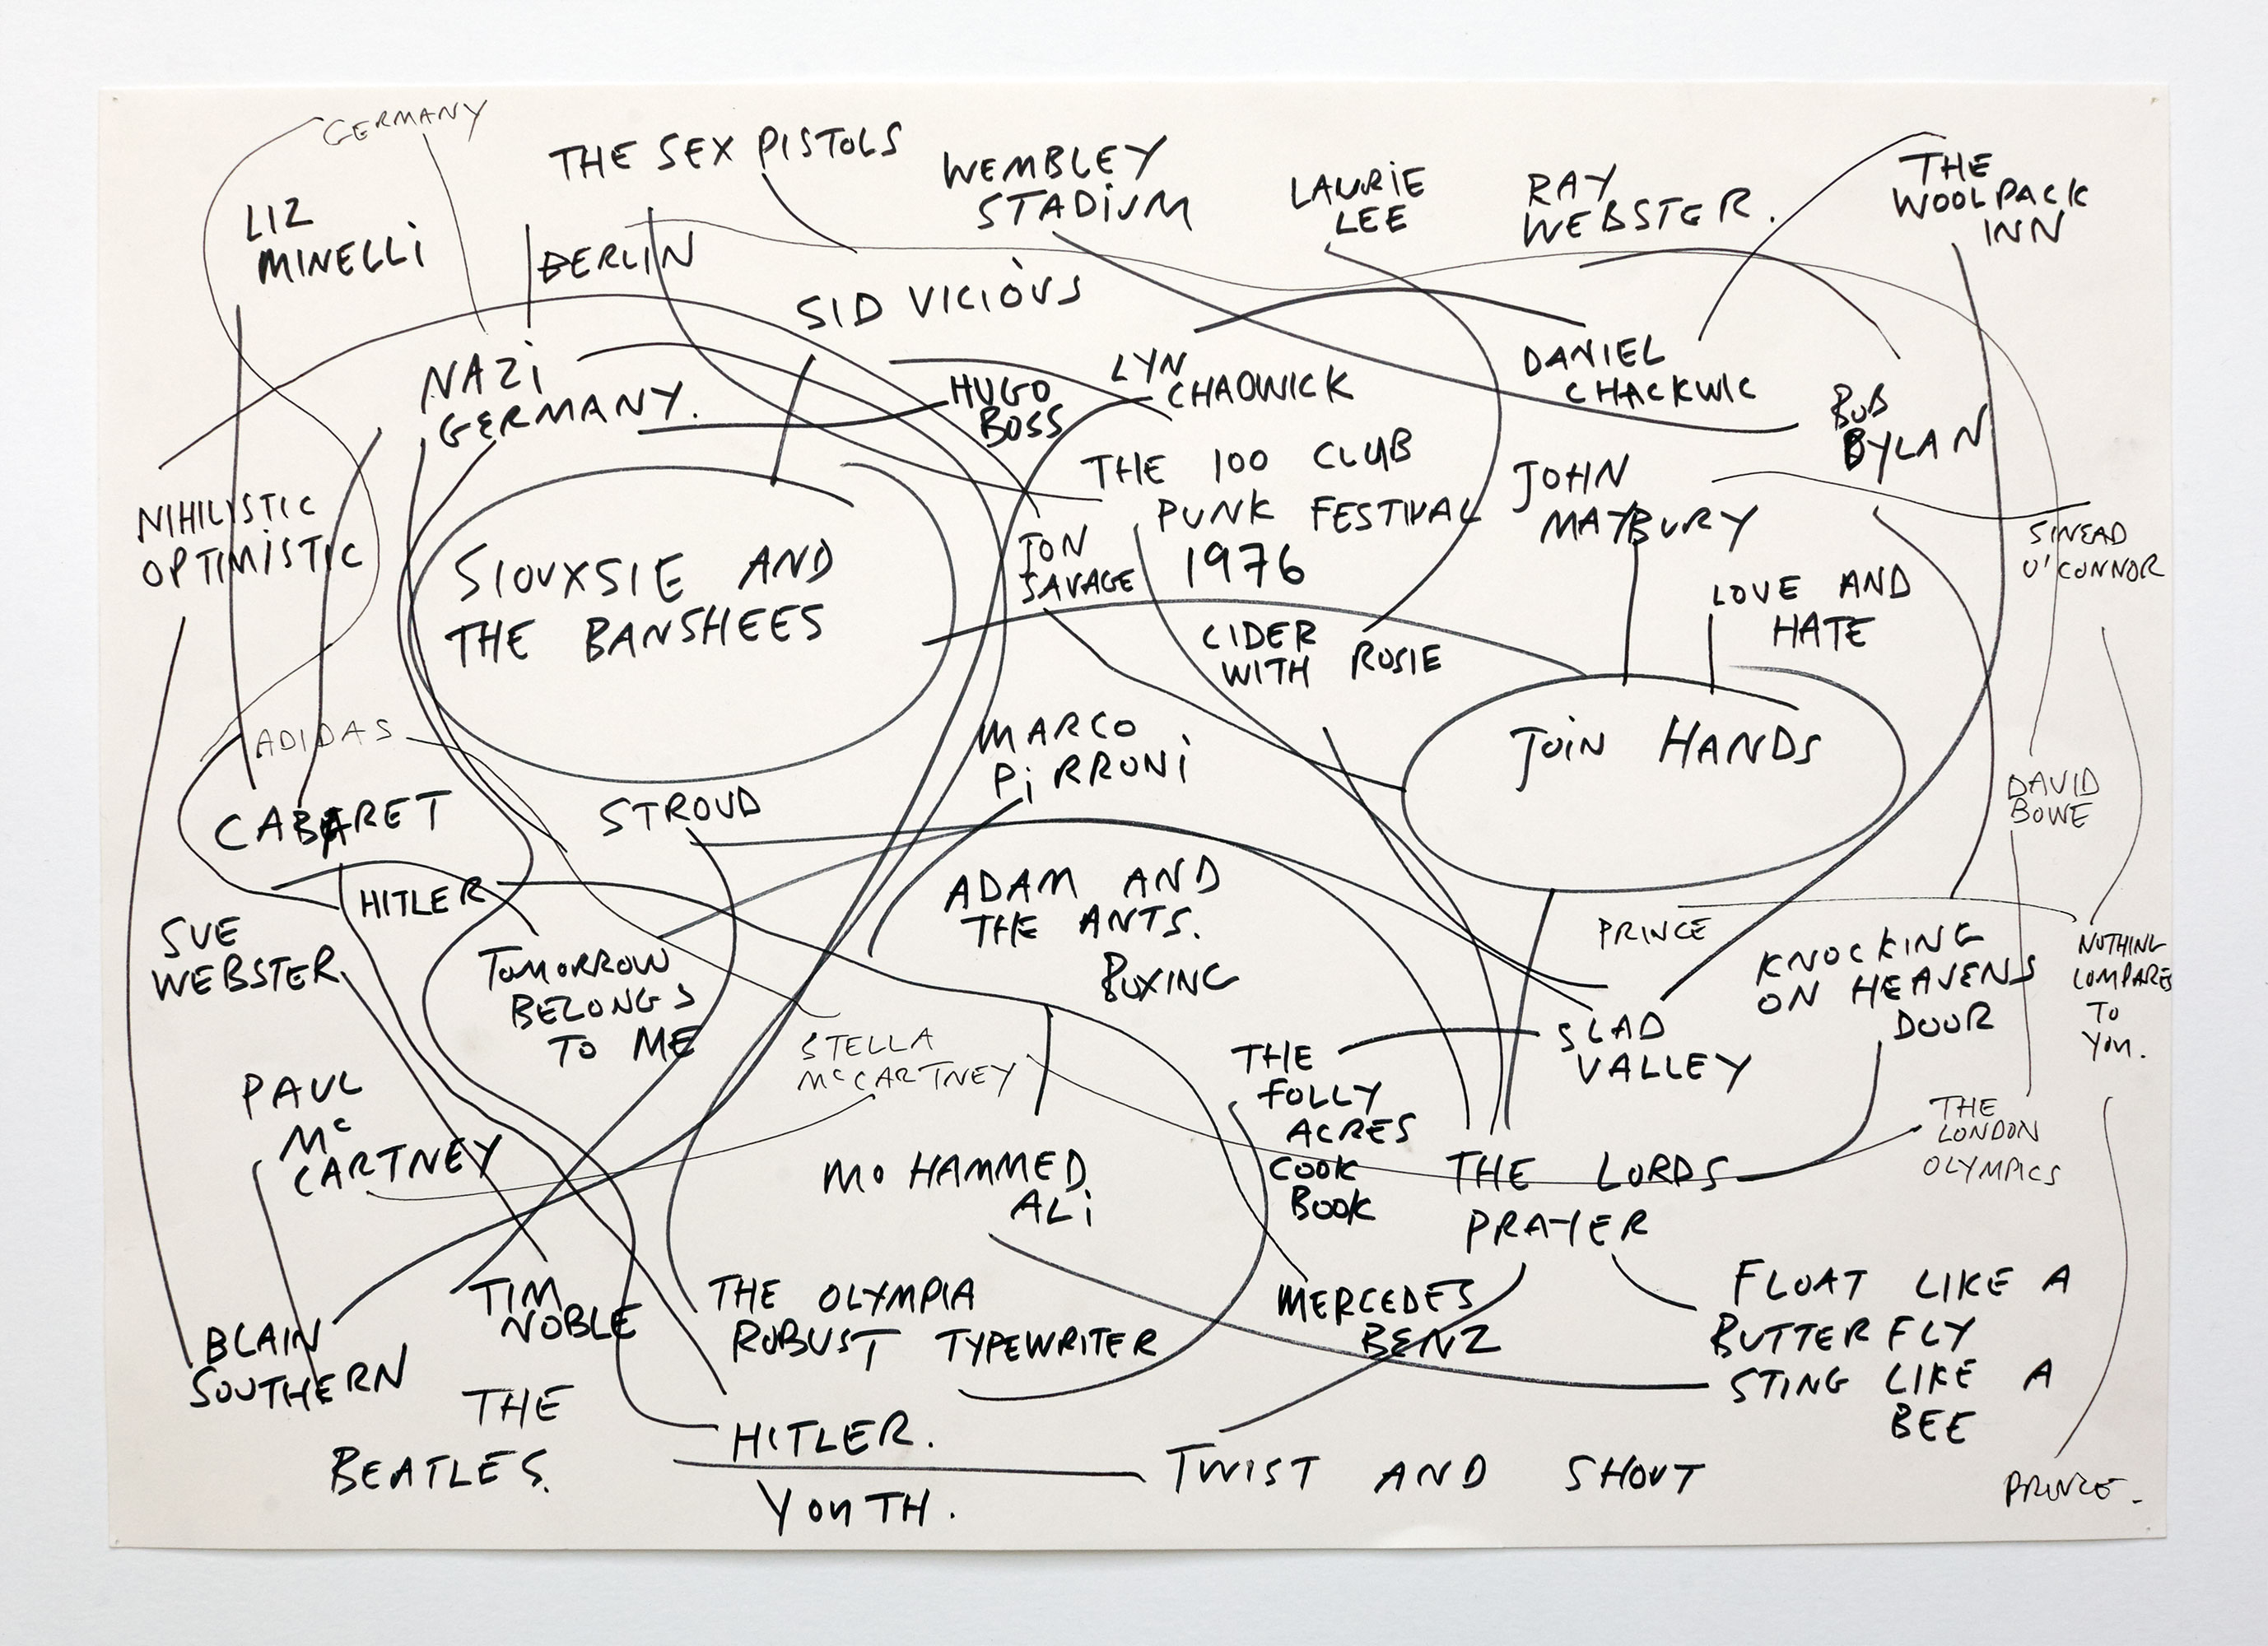 GERMANY
THE SEX PISTOLS
WEMBLEY
STADIUM
LAURIE
LEE
RAY
WEBSTER.
THE
WOOLPACK
INN
LIZ
MINELLI
BERLIN
SID VICIOUS
NAZI
GERMANY.
HUGO
BOSS
LYN
CHADWICK
DANIEL
CHACKWIC
BOB
BYLAN
NIHILISTIC
OPTIMISTIC
SIOUXSIE AND
THE BANSHEES
JON
SAVAGE
THE 100 CLUB
PUNK FESTIVAL
1976
JOHN
MAYBURY
SINEAD
O'CONNOR
LOVE AND
HATE
CIDER
WITH ROSIE
ADIDAS
MARCO
PIRRONI
JOIN HANDS
DAVID
BOWE
CABARET
STROUD
HITLER
ADAM AND
THE ANTS.
BOXING
PRINCE
KNOCKING
ON HEAVENS
DOOR
NOTHING
COMPARES
TO
YOU.
SUE
WEBSTER
TOMORROW
BELONGS
TO ME
STELLA
McCARTNEY
SLAD
VALLEY
THE
FOLLY
ACRES
COOK
BOOK
PAUL
Mc
CARTNEY
MOHAMMED
ALI
THE LORDS
PRAYER
THE
LONDON
OLYMPICS
TIM
NOBLE
THE OLYMPIA
ROBUST TYPEWRITER
MERCEDES
BENZ
FLOAT LIKE A
BUTTERFLY
STING LIKE A
BEE
BLAIN
SOUTHERN
THE
BEATLES.
HITLER.
YOUTH.
TWIST AND SHOUT
PRINCE.